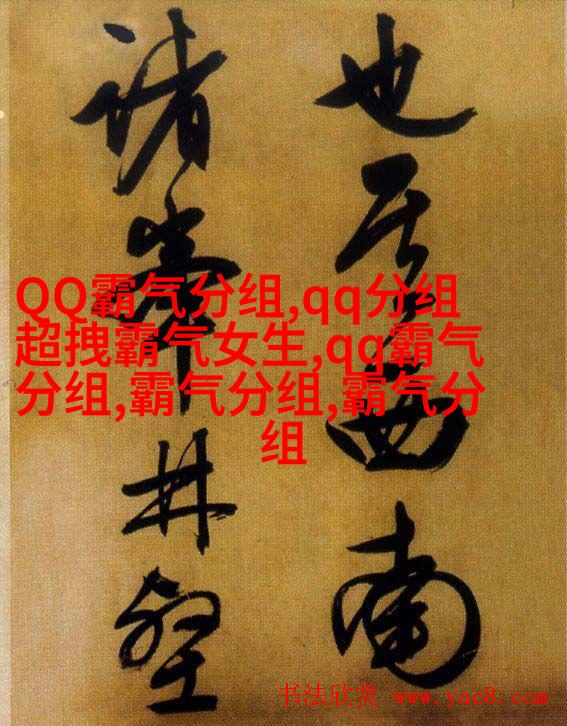 也其西南
諸峯林壑
QQ霸气分组,qq分组
超拽霸气女生,qq霸气
分组,霸气分组,霸气分
组
书法欣赏 www.yac8.com